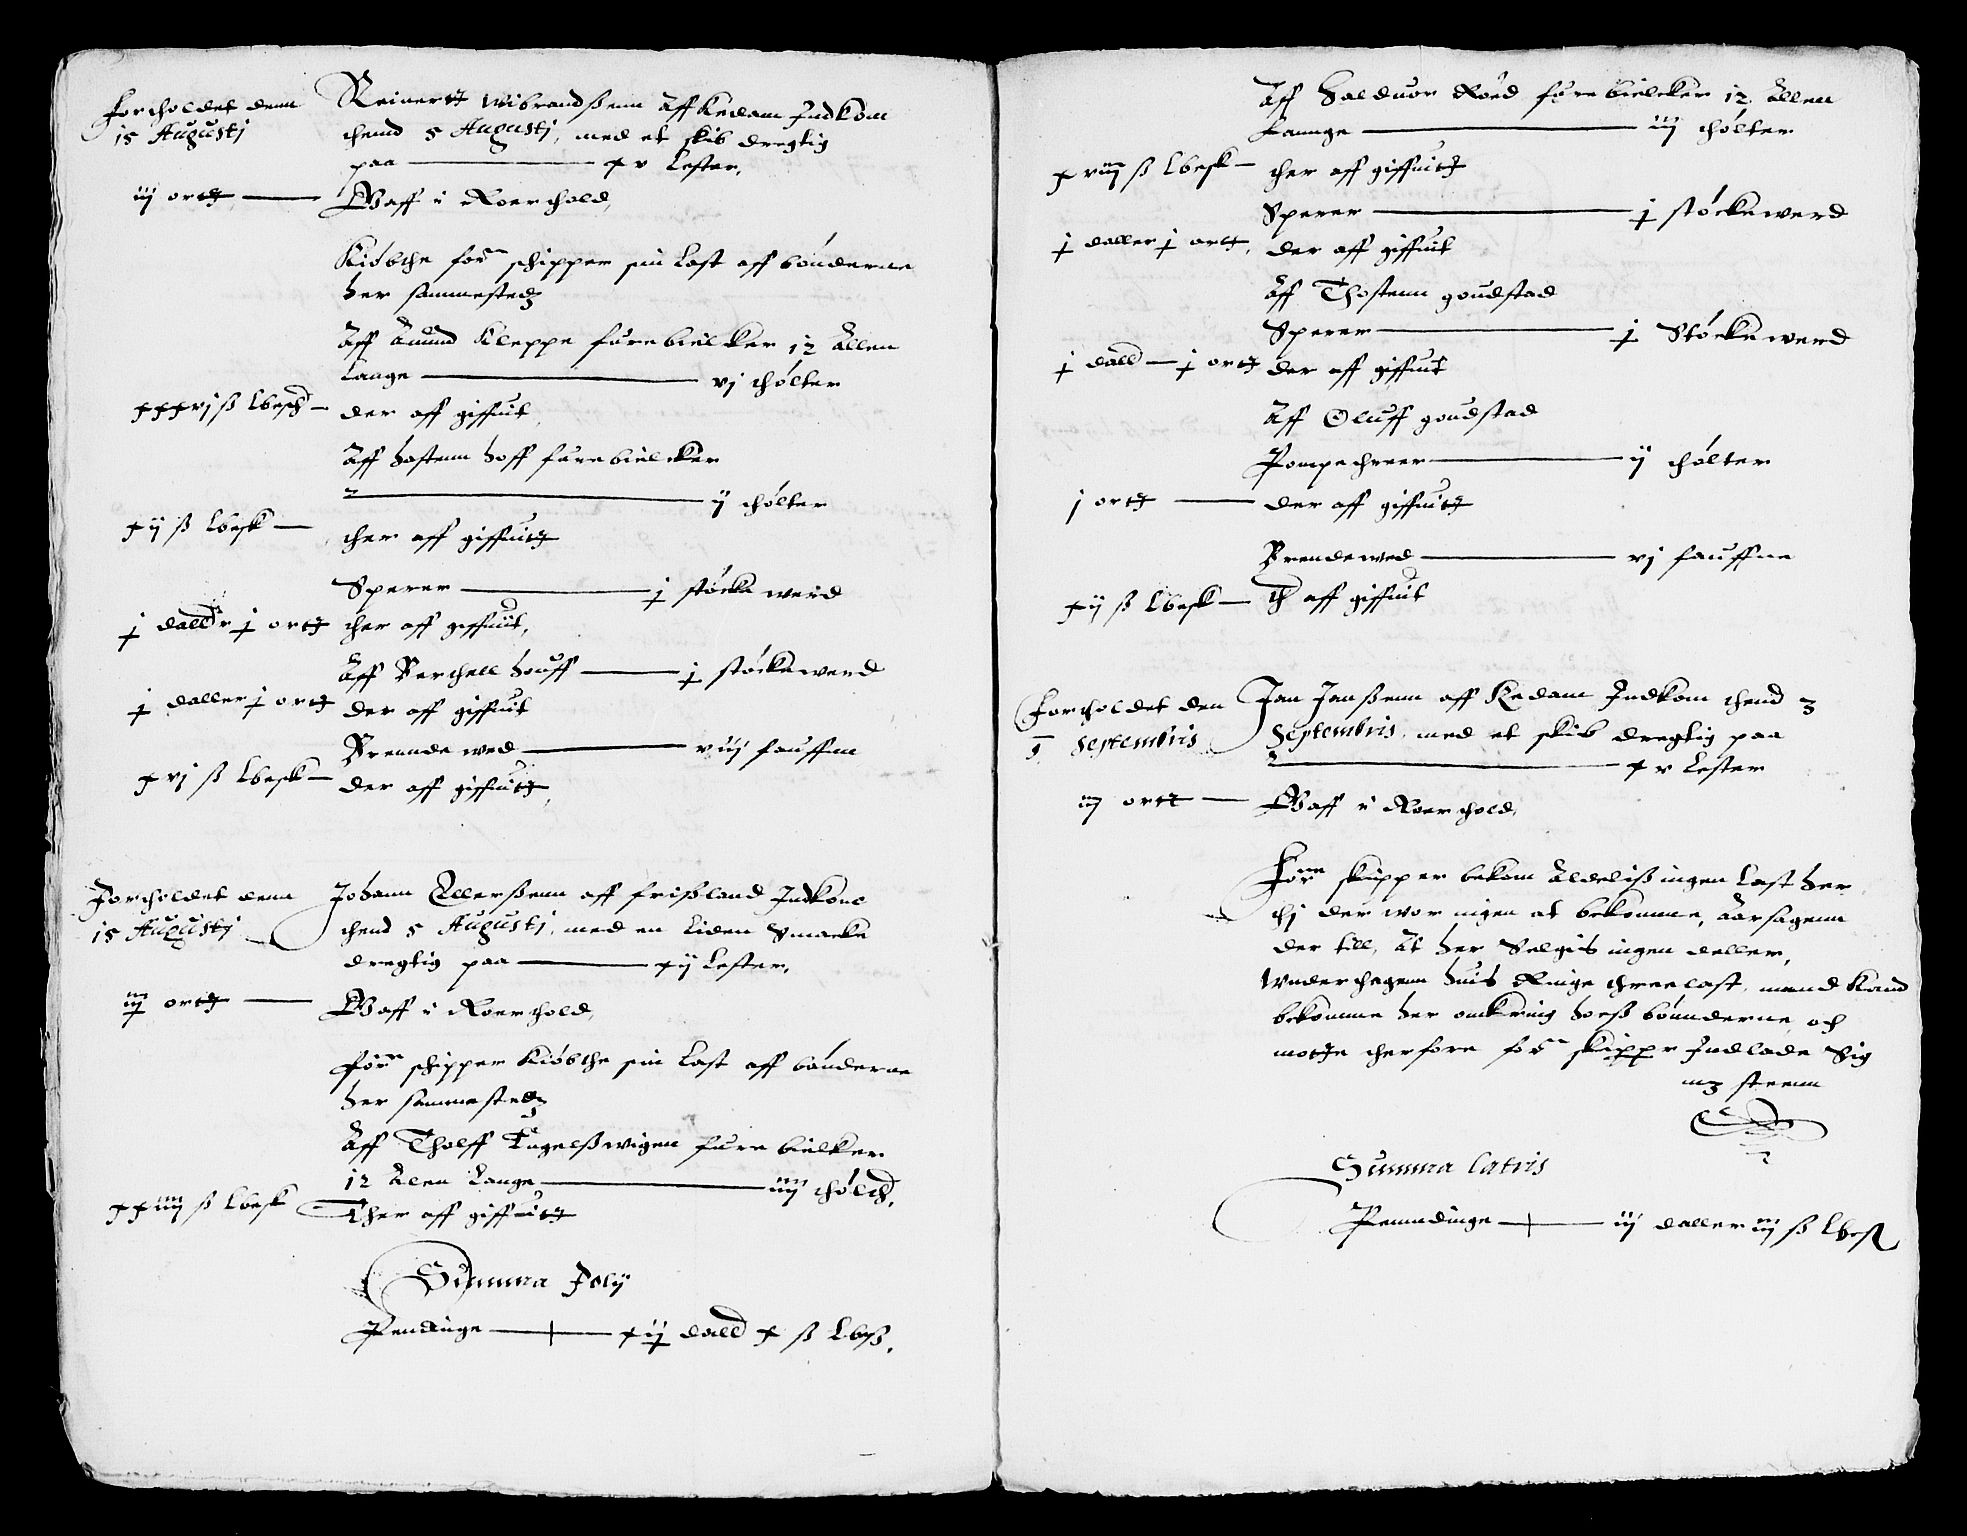 Forholdet denn
15 Augustj
Reinertt Wibrandßenn Aff Kedam Indkom
hend 5 Augustj, med et skib dregtig
paa — xv Lester,
iij ortt — Gaff i Roerthold,
Kiöbthe for^ne schipper sin Last aff bönderne
her sammestedz
Aff Amund Kleppe fürebielcker 12 Allen
Lange — vj tholter
xxxvj ß lbesch — der aff giffuit,
Aff hostenn hoff fürebielcker
— ij tholter
xij ß lbesk — ther aff giffuitt
Sperer — j stöcke werd
j dalder j ortt ther aff giffuit,
Aff Berthell houff — j stöckewerd
j daller j ortt der aff giffuit
Brennde wed — viij fauffnn
xvj ß lbesk — der aff giffuitt,
Forholdet denn
15 Augustj
Johann Ellerßenn aff frißland Indkom
hend 5 Augustj, med en liden Smacke
dregtig paa — xij Lester,
iij ortt — Gaff i Roerthold,
for^ne schipper Kiöbthe sin Last aff bönderne
her sammestedz
Aff Tholff Engelßwigen füre bielker
12 Alen Lange — iiij thölth,
xxiiij ß lbesk Ther aff giffuitt
Summa Jolij
Pendinge — xij dald x ß lbß,
Aff Halduor Röed fürebielcker 12 Allen
Lannge — iij thölter
xviij ß lbesk — ther aff giffuitt
Sperer — j stöckewerd
j daller j ortt, der aff giffuit
Aff Thostenn goudstad
Sperer — j Stöckewerd
j dald — j ortt der aff giffuit
Aff Oluff goudstad
Pompethreer — ij thölter
j ortt — der aff giffuitt
Brendewed — vj fauffne
xij ß lbesk — th aff giffuit
Forholdet den
9 Septembris
Jan Janßenn aff Kedam Indkom thend 3
Septembris, med et skib dregtig paa
— xv Lester
iij ortt — Gaff i Roerthold,
For^ne skipper bekom Aldelis ingen Last her
thj der wor ingen at bekomme, Aarsagenn
der till, At her Selgis ingen deller,
Wnderthagenn huis Ringe threelast, mand kand
bekomme her omkring hoeß bönnderne, och
motte therfore for^ne skipper Indlade Sig
mz steenn
Summa latris
Penndinge — iij daller iij ß lbesk